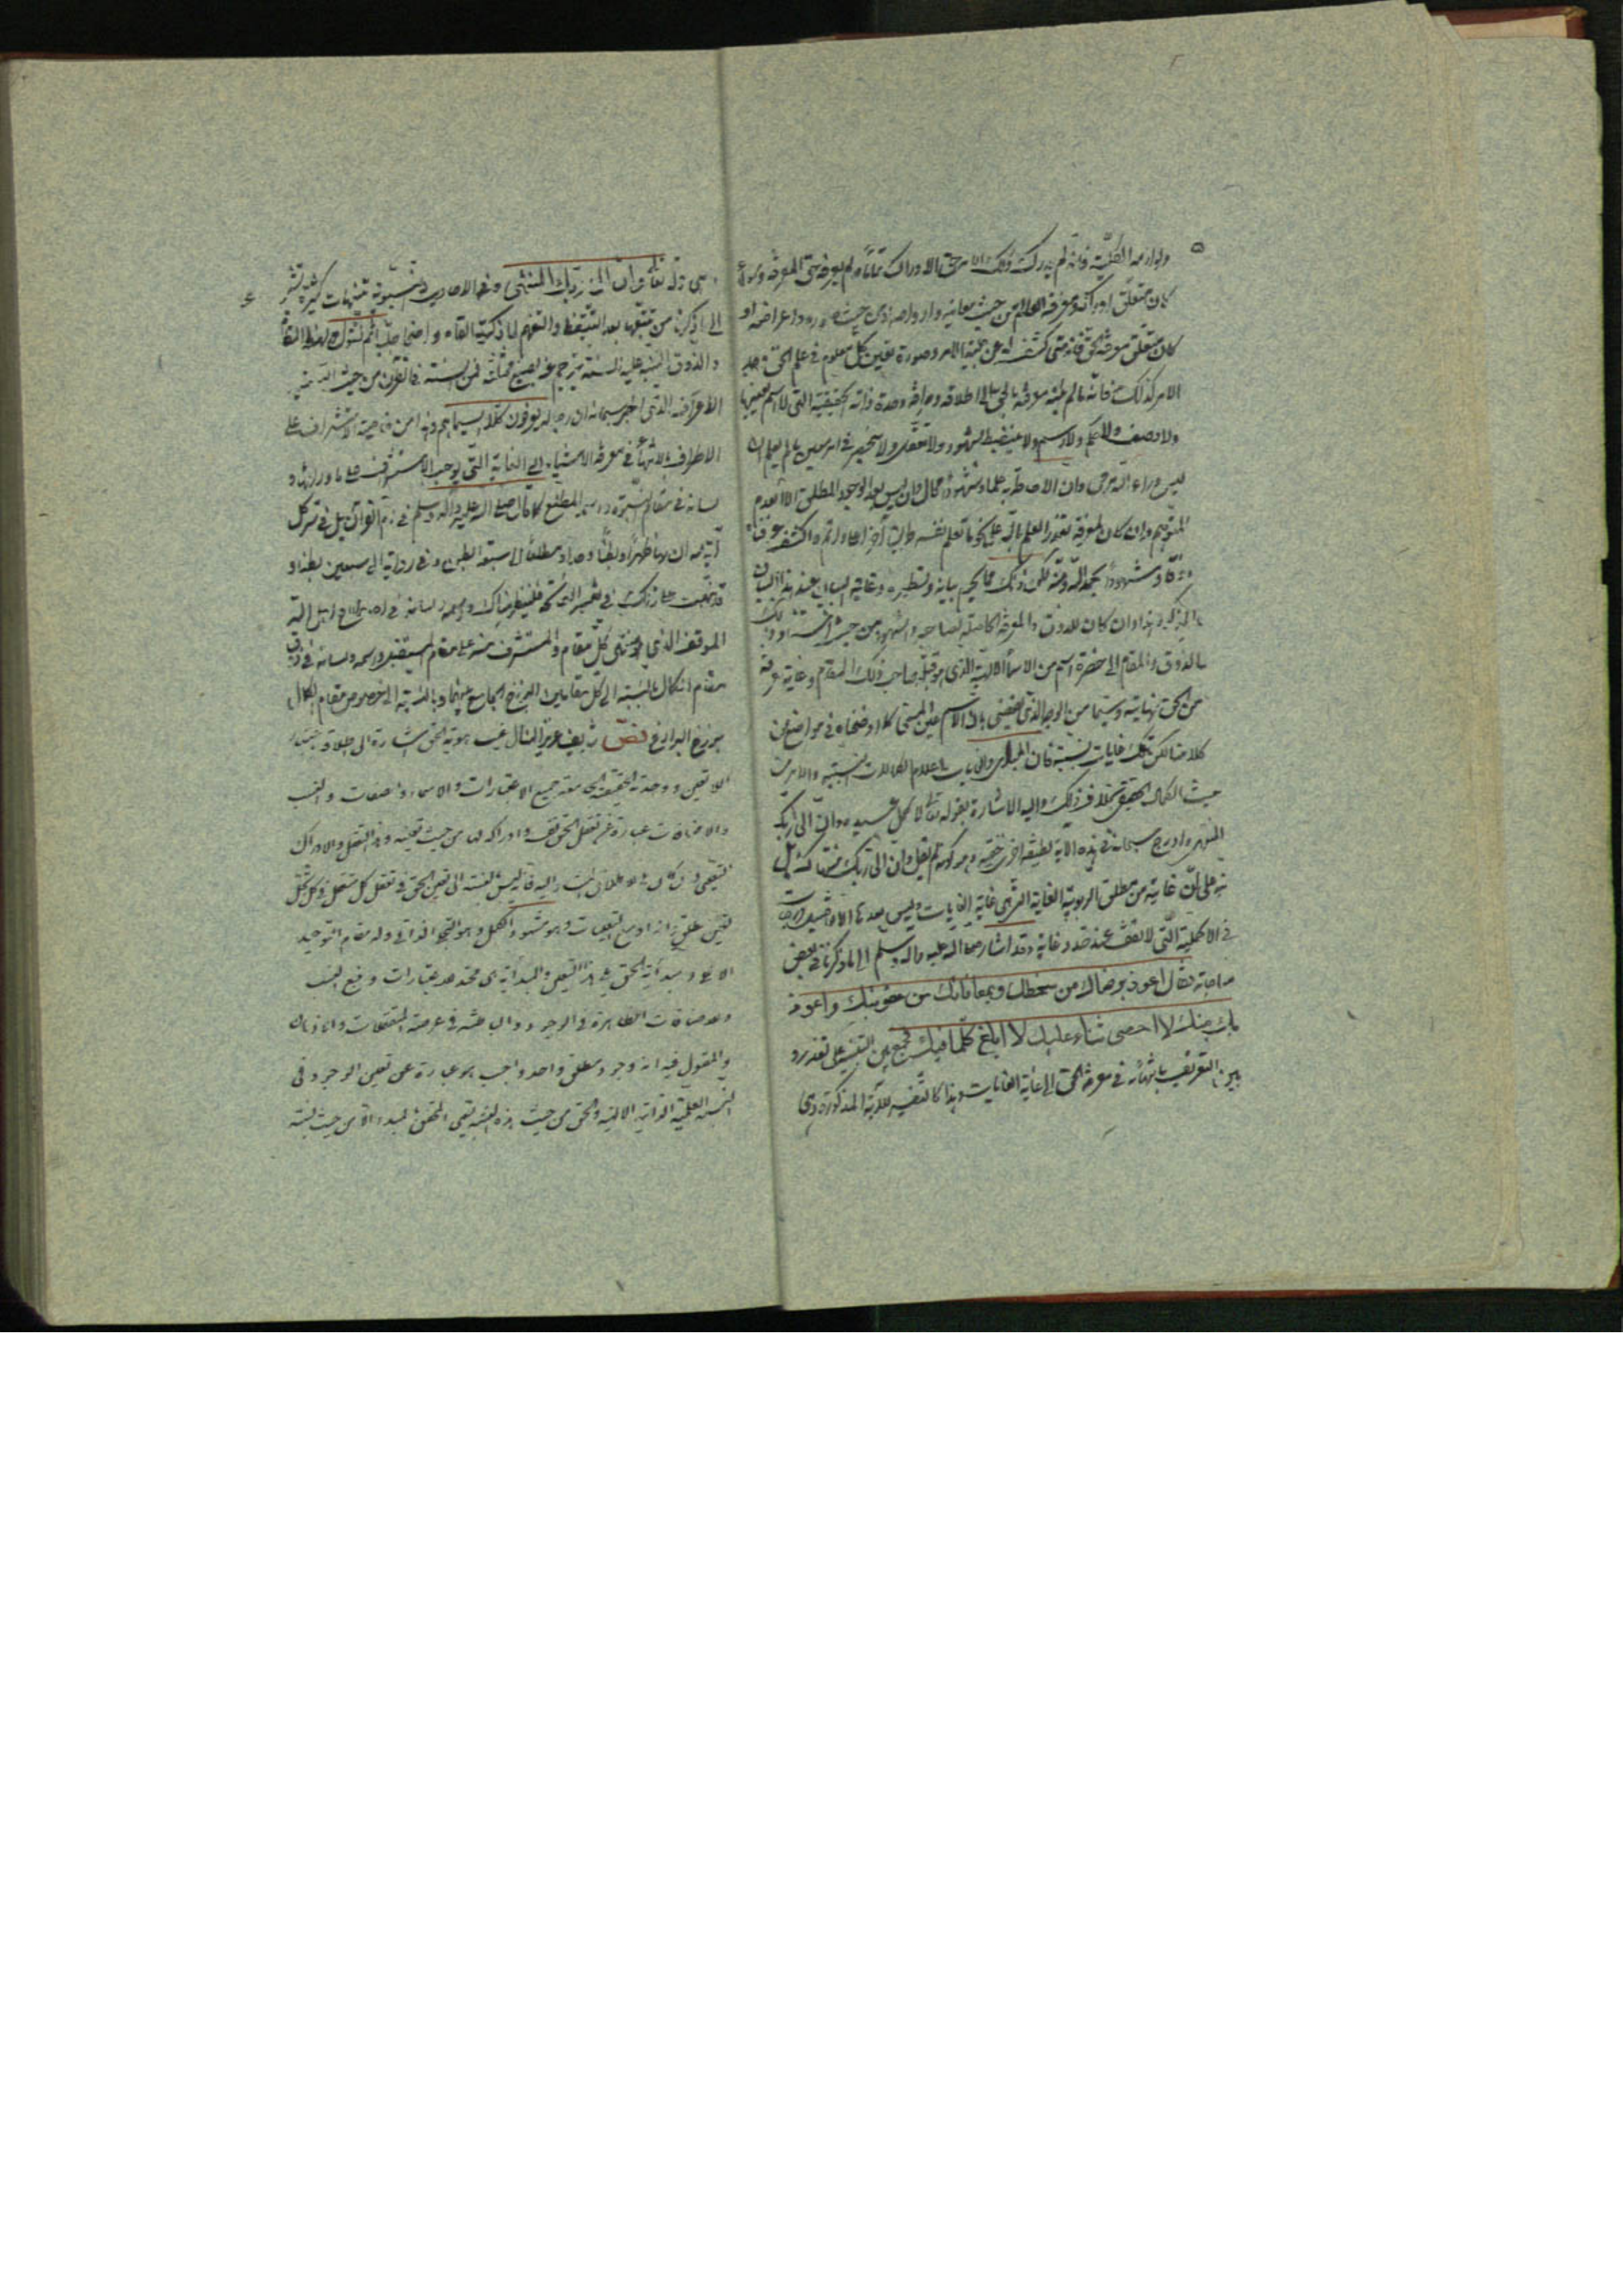 ٥
ولوازمه الكلية فانه لم يدرك ذلك الامر حق الادراك تماما ولم يعرفه حق المعرفة وسواء
كان متعلق ادراكه ومعرفته العالم من حيث معانيه وارواحه او من حيث صوره واعراضه او
كان متعلق معرفته الحق فانه متى كشف له عن جلية الامر وصورة تعين كل معلوم في علم الحق وجد
الامر كذلك فانه مالم ينته معرفته بالحق الى اطلاقه وصرافة وحدة ذاته الحقيقية التي لا اسم يعينها
ولا وصف ولا حكم ولا رسم ولا ينضبط لشهود ولا تعقل ولا ينحصر في امر معين لم يعلم ان
ليس وراء الله مرمى وان الاحاطة به علما وشهودا محال وان ليس بعد الوجود المطلق الا العدم
المتوهم وان كان لمعرفة تعذر العلم بالله على نحو ما تعلم نفسه طريق آخر اعلى واتم واكشف عرفناه
ذوقا وشهودا بحمد الله ومنه لكن ذلك مما يحرم بيانه وتسطيره وغاية البيان عنه هذا البيان
المذكور هذا وان كان للذوق والمعرفة الحاصلة لصاحبه والشهود من حيث استناد ذلك
الذوق والمقام الى حضرة اسم من الاسماء الالهية الذي هو قبلة صاحب ذلك المقام وغاية معرفته
من الحق نهاية وسيما من الوجه الذي يقضى بان الاسم عين المسمى كما اوضحناه في مواضع من
كلامنا لكن تلك غايات نسبية فان المبادى والغايات اعلام الكمالات النسبية والامر من
حيث الكمال الحقيقي بخلاف ذلك واليه الاشارة بقوله تعالى لاكمل عبيده وان الى ربك
المنتهى وادرج سبحانه في هذه الآية لطيفة اخرى خفية وهو كونه لم يقل وان الى ربك منتهاك بل
نبه على ان غايته من مطلق الربوبية الغاية التي هي غاية الغايات وليس بعدها الا درجات
في الاكملية التي لا تقف عند حد وغاية وقد اشار صلى الله عليه واله وسلم الى ما ذكرنا في بعض
مناجاته فقال اعوذ برضاك من سخطك وبمعافاتك من عقوبتك واعوذ
بك منك لا احصى ثناء عليك لا ابلغ كلما فيك فجمع بين التنبيه على تعذر
وبين التعريف بانتهائه في معرفة الحق الى غاية الغايات وهذا كالتفسير للآية المذكورة وهي
٤
وهي قوله تعالى وان الى ربك المنتهى وفي الاحاديث النبوية تنبيهات كثيرة تشير
الى ما ذكرنا من تتبعها بعد التيقظ والتفهم لما ذكر القاه واضحا جليا ثم نقول ولهذا المقام
والذوق المنبه عليه السنة تترجم عنه بصيغ مختلفة فمن السنته في القرآن من حيث التسمية
الاعراف الذي اخبر سبحانه ان رجاله يعرفون كلا بسيماهم وهذا من خاصية الاستشراف على
الاطراف والانتهاء في معرفة الاشياء الى الغاية التي يوجب الاستشراف على ما وراءها و
لسانه في مقام النبوة واسمه المطلع كما قال صلى الله عليه واله وسلم في امر القرآن بل في سر كل
آية منه ان لها ظهرا وبطنا وحدا ومطلعا الى سبعة ابطن وفي رواية الى سبعين بطنا و
قد تكلمت على ذلك في تفسير الفاتحة فلينظر هناك واسمه ولسانه في اصطلاح اهل الله
الموقف الذي هو منتهى كل مقام والمستشرف منه على مقام المستقبل واسمه ولسانه في ذوق
مقام الكمال بالنسبة الى كل مقامين البرزخ الجامع بينهما وبالنسبة الى خصوص مقام الكمال
برزخ البرازخ نص شريف عزيز المنال غيب هوية الحق اشارة الى اطلاقه باعتبار
اللاتعين ووحدته الحقيقية الماحية جميع الاعتبارات والاسماء والصفات والنسب
والاضافات عبارة عن تعقل الحق نفسه وادراكه لها من حيث تعينه وهذا التعقل والادراك
التعيني وان كان يلي الاطلاق المشار اليه فانه بالنسبة الى تعين الحق في تعقل كل متعقل وفي كل تجل
تعين مطلق وانه اوسع التعينات وهو مشهود الكمل وهو التجلي الذاتي وله مقام التوحيد
الاعلى ومبدئية الحق يلي هذا التعين والمبدئية هي محتد الاعتبارات ومنبع النسب
والاضافات الظاهرة في الوجود والباطنة في عرصة التعقلات والاذهان
والمقول فيه انه وجود مطلق واحد واجب هو عبارة عن تعين الوجود في
النسبة العلمية الذاتية الالهية والحق من حيث هذه النسبة يسمى المحقق المبدء لا من حيث نسبة